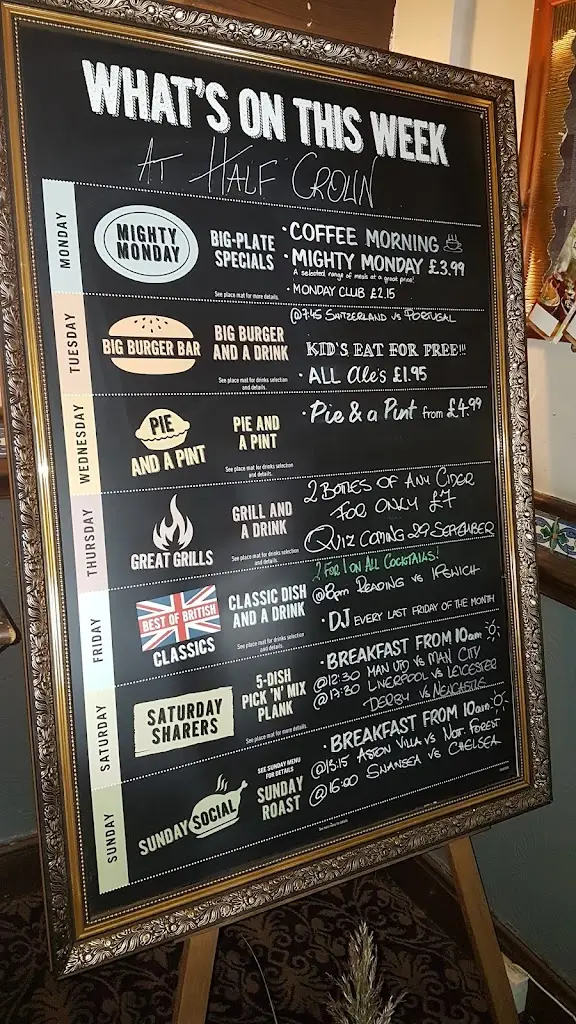 WHAT'S ON THIS WEEK
AT HALF CROWN
MONDAY
MIGHTY
MONDAY
BIG-PLATE
SPECIALS
See place mat for more details.
• COFFEE MORNING
• MIGHTY MONDAY £3.99
A selected range of meals at a great price!
• MONDAY CLUB £2.15
TUESDAY
BIG BURGER BAR
BIG BURGER
AND A DRINK
See place mat for drinks selection
and details.
@7:45 SWITZERLAND VS PORTUGAL
KID'S EAT FOR FREE!!!
• ALL Ale's £1.95
WEDNESDAY
PIE
AND A PINT
PIE AND
A PINT
See place mat for drinks selection
and details.
• Pie & a Pint from £4.99
THURSDAY
GREAT GRILLS
GRILL AND
A DRINK
See place mat for drinks selection
and details.
2 BOTLES OF ANY CIDER
FOR ONLY £7
QUIZ COMING 29 SEPTEMBER
FRIDAY
BEST OF BRITISH
CLASSICS
CLASSIC DISH
AND A DRINK
See place mat for drinks selection
and details.
2 FOR 1 ON ALL COCKTAILS!
@8pm READING VS IPSWICH
• DJ EVERY LAST FRIDAY OF THE MONTH
SATURDAY
SATURDAY
SHARERS
5-DISH
PICK 'N' MIX
PLANK
See place mat for more details.
• BREAKFAST FROM 10am
@12:30 MAN UTD VS MAN CITY
@17:30 LIVERPOOL VS LEICESTER
DERBY VS NEWCASTLE
SUNDAY
SUNDAY SOCIAL
SEE SUNDAY MENU
FOR DETAILS
SUNDAY
ROAST
• BREAKFAST FROM 10am
@13:15 ASTON VILLA VS NOT. FOREST
@16:00 SWANSEA VS CHELSEA